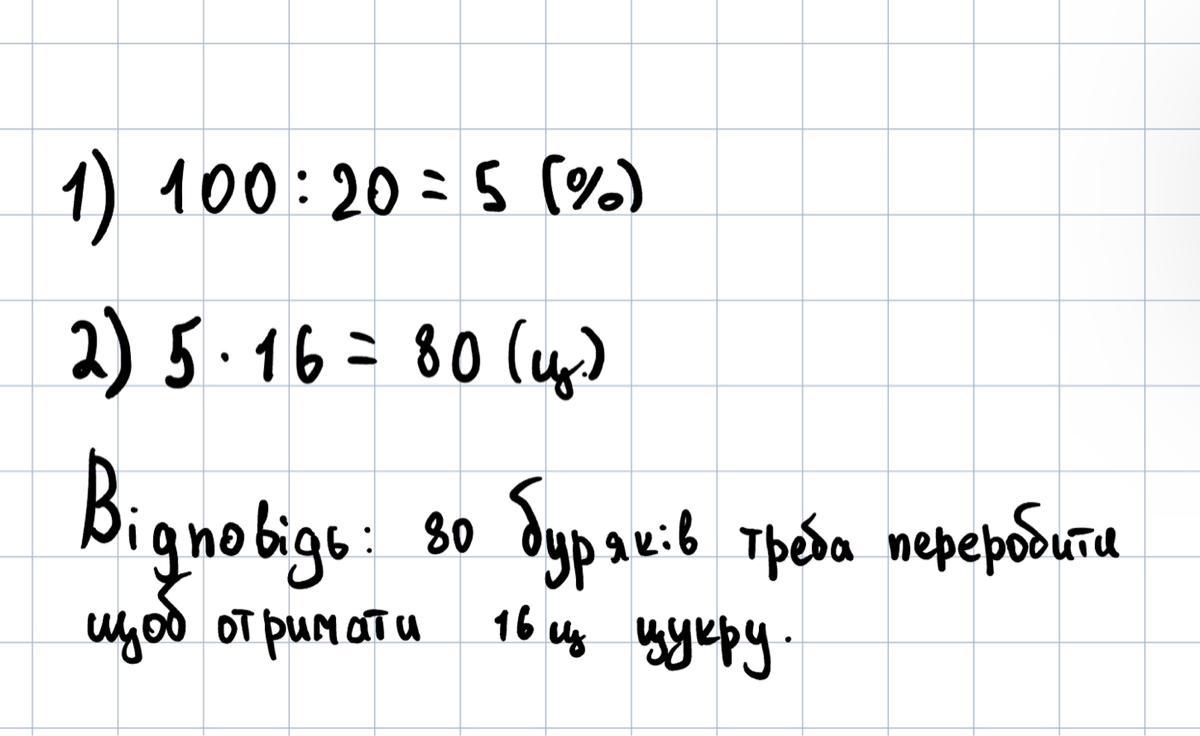 1) 100 : 20 = 5 (%)
2) 5 · 16 = 80 (ц.)
Відповідь: 80 буряків треба переробити
щоб отримати 16 ц цукру.